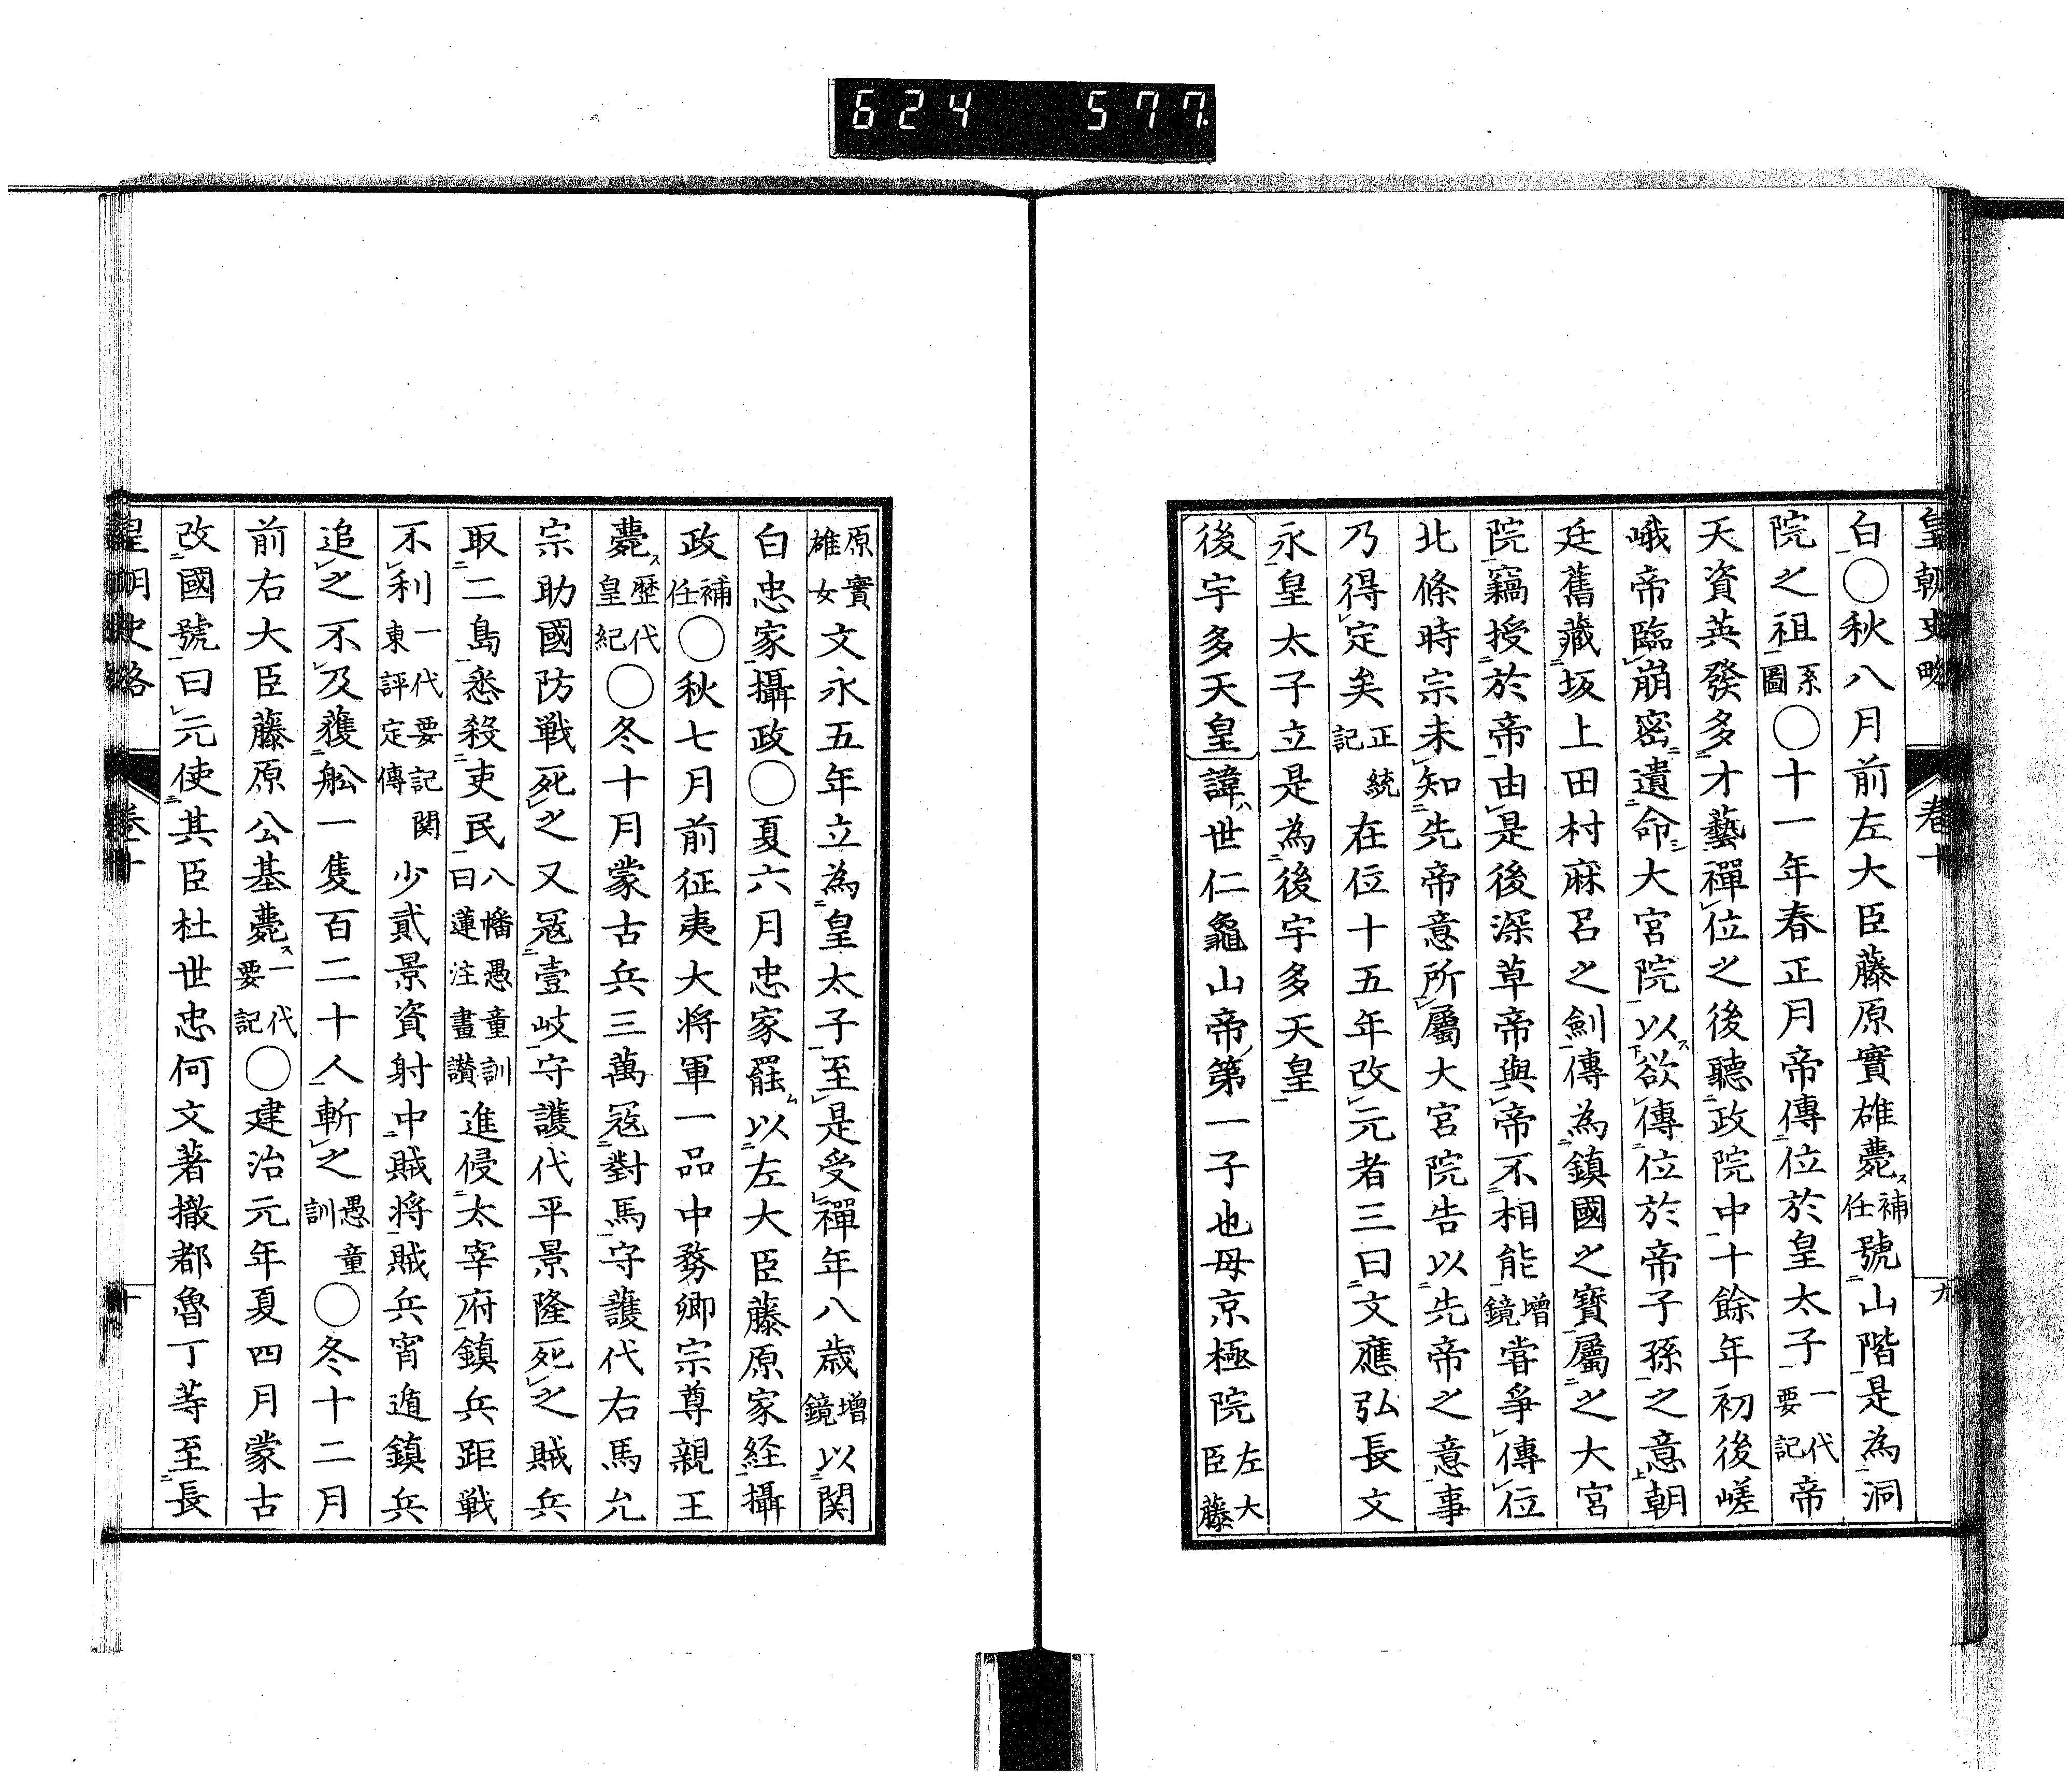 624 577.
皇朝史略 卷十 九
白○秋八月前左大臣藤原實雄薨補任號山階是為洞
院之祖系圖○十一年春正月帝傳位於皇太子一代要記帝
天資英發多才藝禪位之後聽政院中十餘年初後嵯
峨帝臨崩密遺命大宮院以欲傳位於帝子孫之意朝
廷舊藏坂上田村麻呂之劍傳為鎮國之寶屬之大宮
院竊授於帝由是後深草帝與帝不相能增鏡甞爭傳位
北條時宗未知先帝意所屬大宮院告以先帝之意事
乃得定矣正統記在位十五年改元者三曰文應弘長文
永皇太子立是為後宇多天皇
後宇多天皇諱世仁龜山帝第一子也母京極院左大臣藤
原實雄女文永五年立為皇太子至是受禪年八歳增鏡以関
白忠家攝政○夏六月忠家罷以左大臣藤原家経攝
政補任○秋七月前征夷大将軍一品中務卿宗尊親王
薨歷代皇紀○冬十月蒙古兵三萬冦對馬守護代右馬允
宗助國防戦死之又冦壹岐守護代平景隆死之賊兵
取二島悉殺吏民八幡愚童訓日蓮注畫讃進侵太宰府鎮兵距戦
不利一代要記関東評定傳少貳景資射中賊将賊兵宵遁鎮兵
追之不及獲舩一隻百二十人斬之愚童訓○冬十二月
前右大臣藤原公基薨一代要記○建治元年夏四月蒙古
改國號曰元使其臣杜世忠何文著撒都魯丁等至長
皇朝史略 卷十